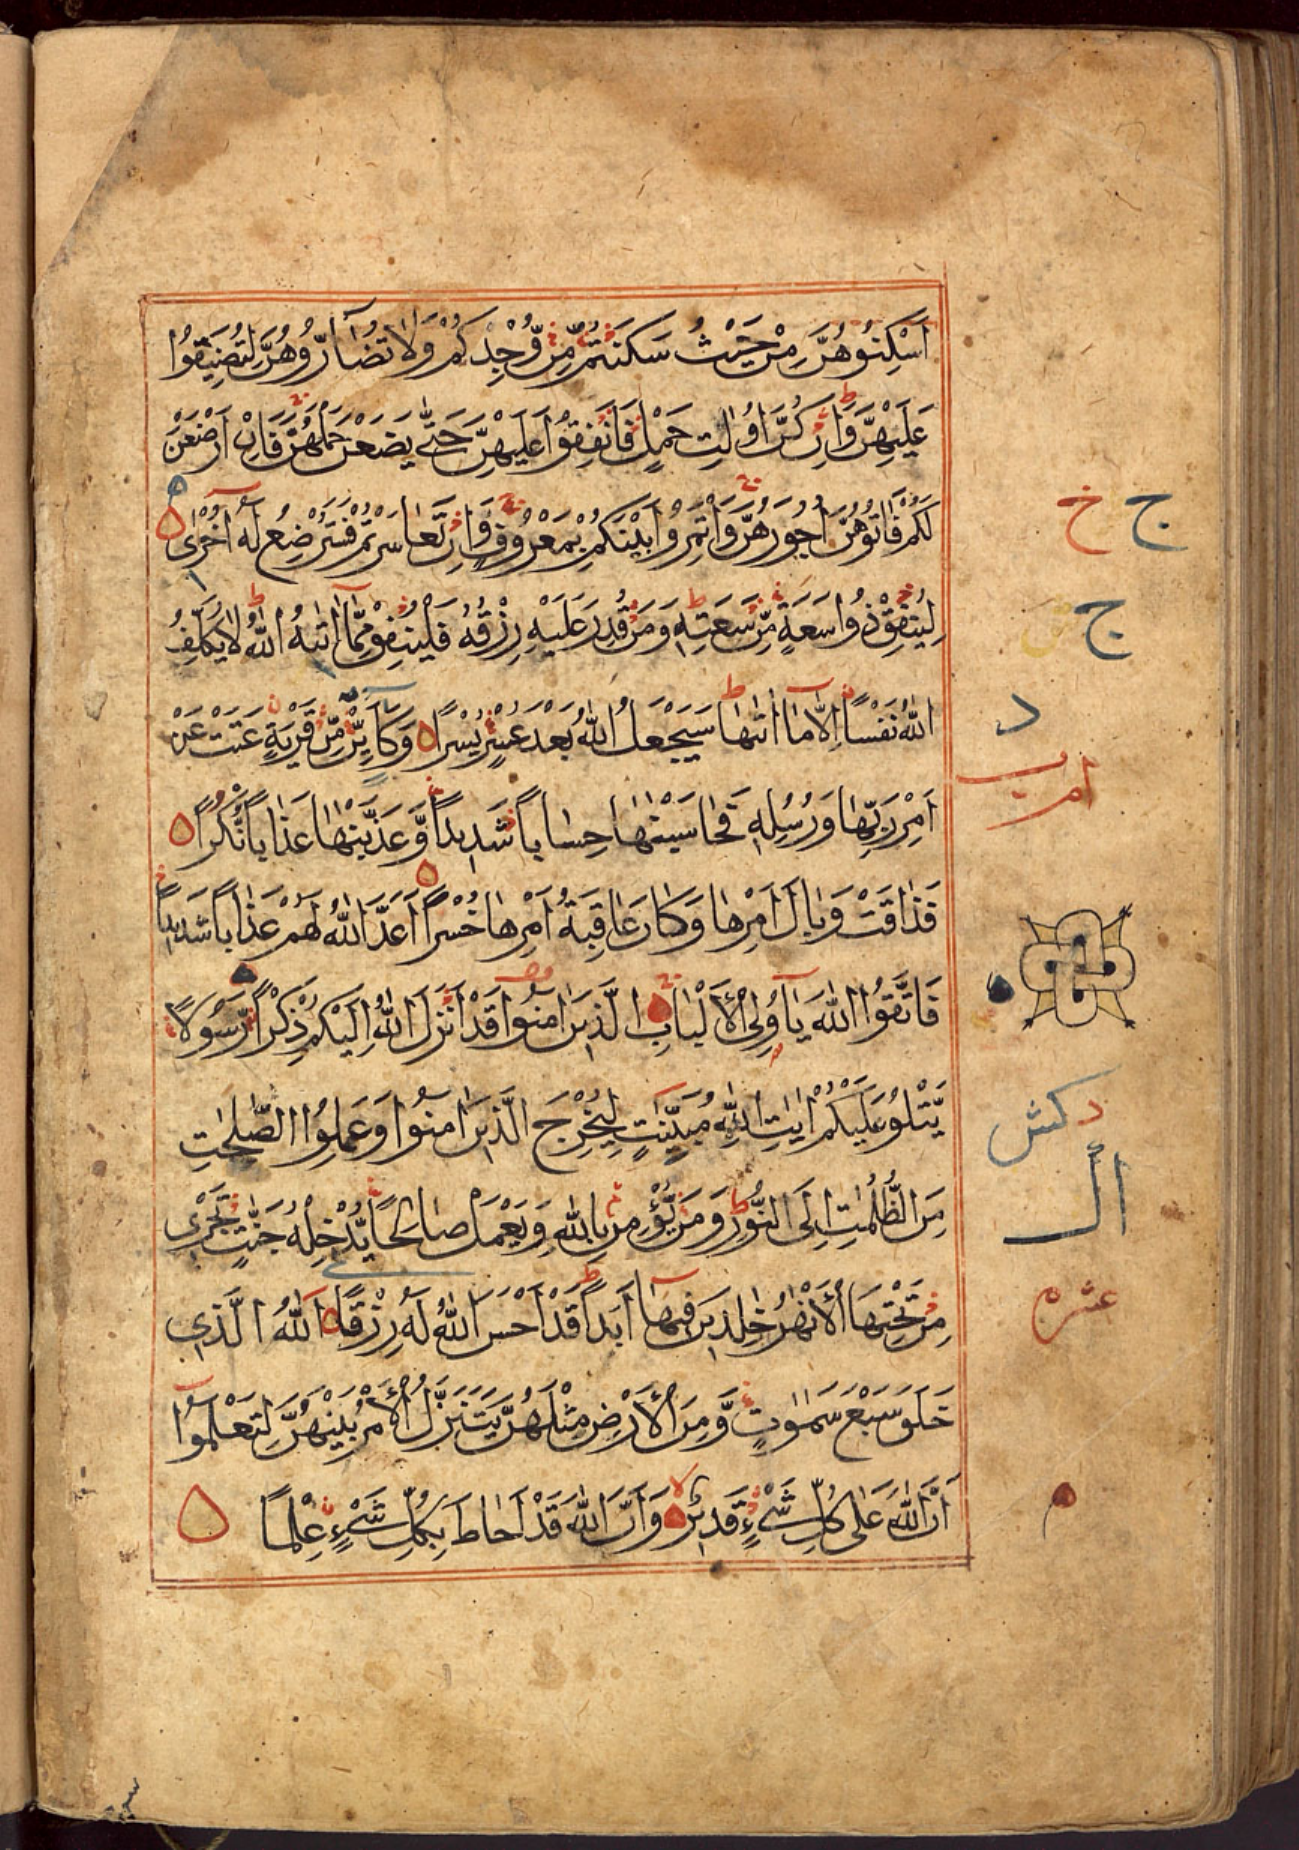 اَسْكِنُوْهُنَّ مِنْ حَيْثُ سَكَنْتُمْ مِّنْ وُّجْدِكُمْ وَلَا تُضَآرُّوْهُنَّ لِتُضَيِّقُوْا
عَلَيْهِنَّ وَاِنْ كُنَّ اُولَاتِ حَمْلٍ فَاَنْفِقُوْا عَلَيْهِنَّ حَتّٰى يَضَعْنَ حَمْلَهُنَّ فَاِنْ اَرْضَعْنَ
لَكُمْ فَاٰتُوْهُنَّ اُجُوْرَهُنَّ وَاْتَمِرُوْا بَيْنَكُمْ بِمَعْرُوْفٍ وَاِنْ تَعَاسَرْتُمْ فَسَتُرْضِعُ لَهٗ اُخْرٰى
لِيُنْفِقْ ذُوْ سَعَةٍ مِّنْ سَعَتِهٖ وَمَنْ قُدِرَ عَلَيْهِ رِزْقُهٗ فَلْيُنْفِقْ مِمَّا اٰتٰىهُ اللّٰهُ لَا يُكَلِّفُ
اللّٰهُ نَفْسًا اِلَّا مَا اٰتٰىهَا سَيَجْعَلُ اللّٰهُ بَعْدَ عُسْرٍ يُّسْرًا وَكَاَيِّنْ مِّنْ قَرْيَةٍ عَتَتْ عَنْ
اَمْرِ رَبِّهَا وَرُسُلِهٖ فَحَاسَبْنٰهَا حِسَابًا شَدِيْدًا وَّعَذَّبْنٰهَا عَذَابًا نُّكْرًا
فَذَاقَتْ وَبَالَ اَمْرِهَا وَكَانَ عَاقِبَةُ اَمْرِهَا خُسْرًا اَعَدَّ اللّٰهُ لَهُمْ عَذَابًا شَدِيْدًا
فَاتَّقُوا اللّٰهَ يَآ اُولِى الْاَلْبَابِ الَّذِيْنَ اٰمَنُوْا قَدْ اَنْزَلَ اللّٰهُ اِلَيْكُمْ ذِكْرًا رَّسُوْلًا
يَّتْلُوْ عَلَيْكُمْ اٰيٰتِ اللّٰهِ مُبَيِّنٰتٍ لِيُخْرِجَ الَّذِيْنَ اٰمَنُوْا وَعَمِلُوا الصّٰلِحٰتِ
مِنَ الظُّلُمٰتِ اِلَى النُّوْرِ وَمَنْ يُّؤْمِنْ بِاللّٰهِ وَيَعْمَلْ صَالِحًا يُّدْخِلْهُ جَنّٰتٍ تَجْرِىْ
مِنْ تَحْتِهَا الْاَنْهٰرُ خٰلِدِيْنَ فِيْهَآ اَبَدًا قَدْ اَحْسَنَ اللّٰهُ لَهٗ رِزْقًا اَللّٰهُ الَّذِىْ
خَلَقَ سَبْعَ سَمٰوٰتٍ وَّمِنَ الْاَرْضِ مِثْلَهُنَّ يَتَنَزَّلُ الْاَمْرُ بَيْنَهُنَّ لِتَعْلَمُوْٓا
اَنَّ اللّٰهَ عَلٰى كُلِّ شَىْءٍ قَدِيْرٌ وَاَنَّ اللّٰهَ قَدْ اَحَاطَ بِكُلِّ شَىْءٍ عِلْمًا
ج خ
ج
د
د كش
عشره
م